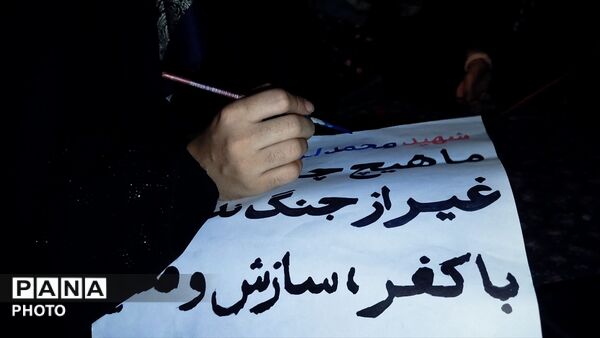 شهید محمد
ما هیچ
غیر از جنگ
با کفر، سازش و
PANA
PHOTO